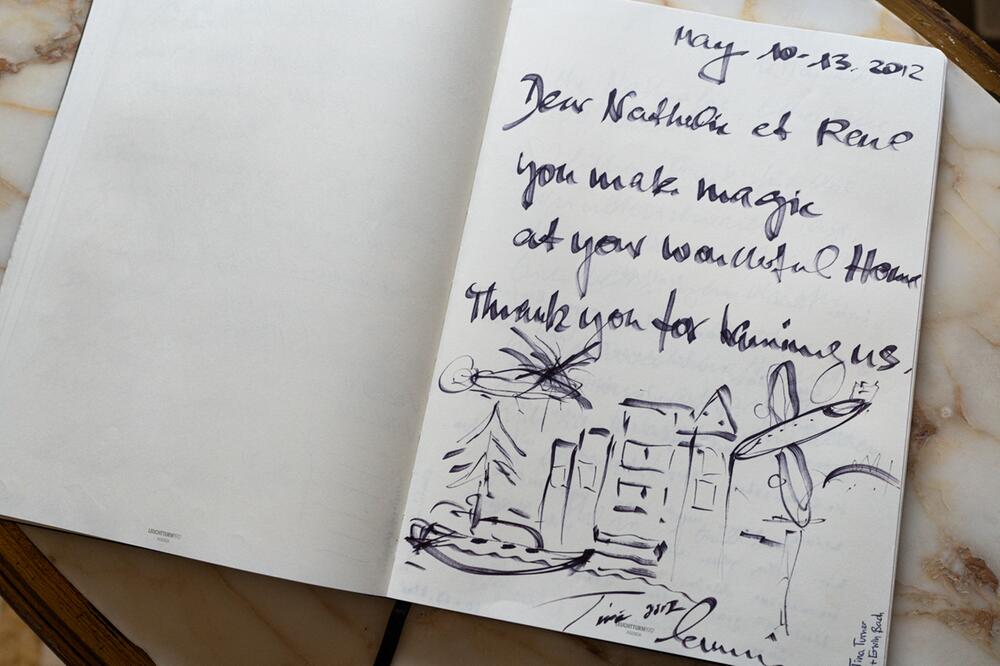 May 10-13. 2012
Dear Nathalie et René
you make magic
at your wonderful Home
Thank you for having us.
Tina 2012
LEUCHTTURM1917
LEUCHTTURM1917
Tina Turner
+ Erwin Bach